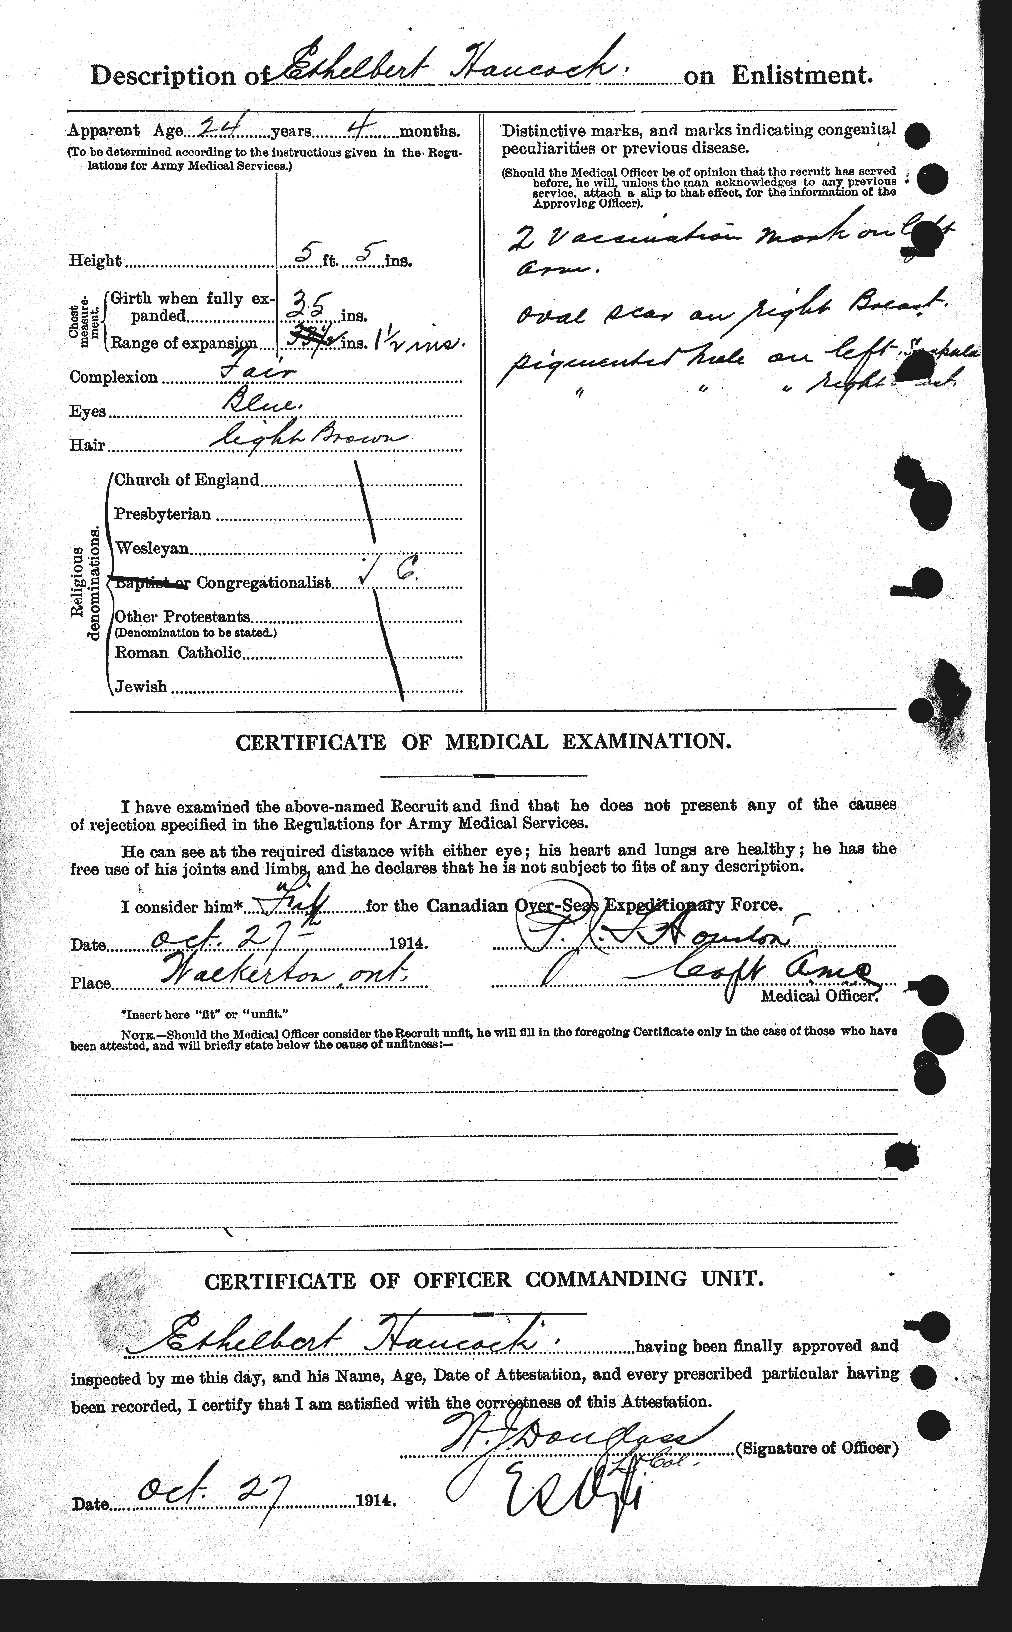 Description of Ethelbert Hancock. on Enlistment.
Apparent Age 24 years 4 months.
(To be determined according to the instructions given in the Regu-
lations for Army Medical Services.)
Height 5 ft. 5 ins.
Chest measure-ment.
Girth when fully ex-
panded 35 ins.
Range of expansion ins. 1½ ins.
Complexion Fair
Eyes Blue.
Hair light Brown
Religious denominations.
Church of England
Presbyterian
Wesleyan
Baptist or Congregationalist C.
Other Protestants
(Denomination to be stated.)
Roman Catholic
Jewish
Distinctive marks, and marks indicating congenital
peculiarities or previous disease.
(Should the Medical Officer be of opinion that the recruit has served
before, he will, unless the man acknowledges to any previous
service, attach a slip to that effect, for the information of the
Approving Officer).
2 Vaccination mark on left
arm.
oval scar on right Breast.
pigmented mole on left
" " " right
CERTIFICATE OF MEDICAL EXAMINATION.
I have examined the above-named Recruit and find that he does not present any of the causes
of rejection specified in the Regulations for Army Medical Services.
He can see at the required distance with either eye; his heart and lungs are healthy; he has the
free use of his joints and limbs, and he declares that he is not subject to fits of any description.
I consider him* "Fit" for the Canadian Over-Seas Expeditionary Force.
Date Oct. 27th 1914.
Place Walkerton, ont.
Houston
Capt AMC
Medical Officer.
*Insert here "fit" or "unfit."
NOTE.—Should the Medical Officer consider the Recruit unfit, he will fill in the foregoing Certificate only in the case of those who have
been attested, and will briefly state below the cause of unfitness:—
CERTIFICATE OF OFFICER COMMANDING UNIT.
Ethelbert Hancock. having been finally approved and
inspected by me this day, and his Name, Age, Date of Attestation, and every prescribed particular having
been recorded, I certify that I am satisfied with the correctness of this Attestation.
Douglass (Signature of Officer)
Lt Col.
Date Oct. 27 1914.